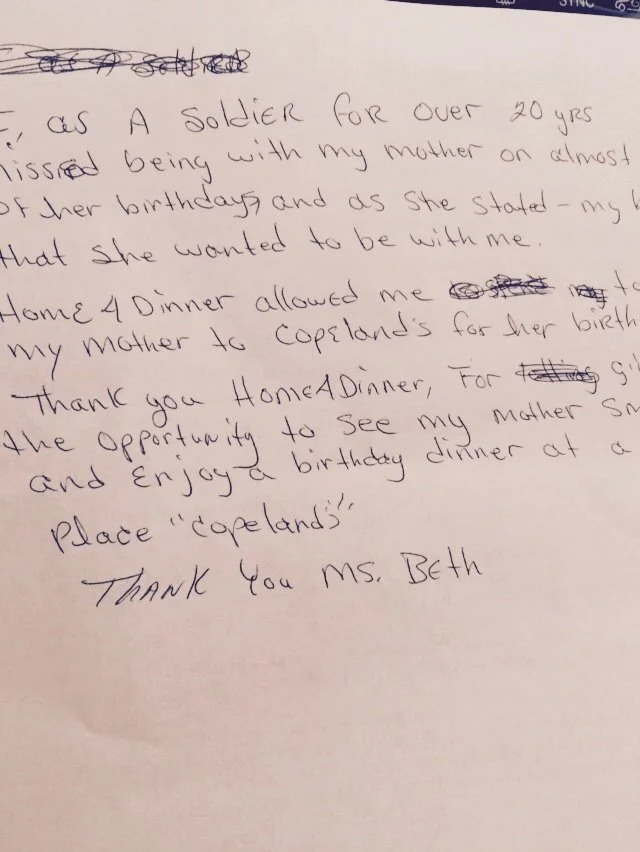 as A Soldier
I, as A Soldier for over 20 yrs
missed being with my mother on almost
of her birthdays, and as she stated - my
that she wanted to be with me.
Home 4 Dinner allowed me to
my mother to Copeland's for her birth
Thank you Home4Dinner, For
the opportunity to see my mother Sm
and Enjoy a birthday dinner at a
Place "Copeland's"
THANK You MS. BEth